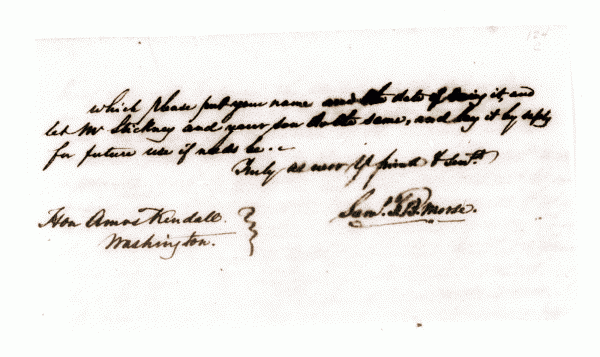 124
which please put your name and the date of doing it, and
let Mr Stickney and your son do the same, and lay it by safely
for future use if needs be. –
Truly as ever Yr friend & Servt.
Hon Amos Kendall.
Washington.
Saml. F. B. Morse.